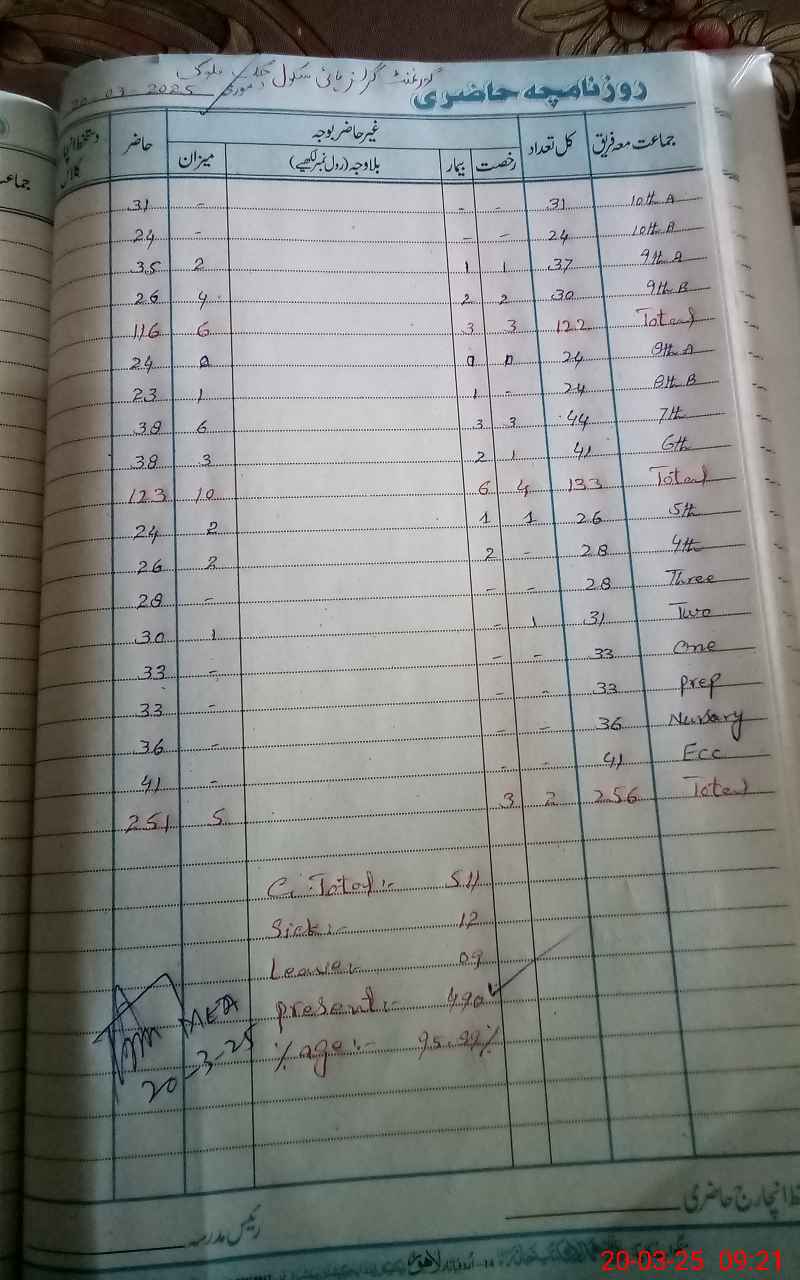 گورنمنٹ گرلز ہائی سکول
20-03-2025
روزنامچہ حاضری
جماعت معہ فریق کل تعداد غیر حاضر بوجہ حاضر
رخصت بیمار بلاوجہ (رول نمبر لکھیے) میزان
31 - - - 31 10th A
24 - - - 24 10th B
35 2 1 1 37 9th A
26 4 2 2 30 9th B
116 6 3 3 122 Total
24 0 0 0 24 8th A
23 1 1 - 24 8th B
38 6 3 3 44 7th
38 3 2 1 41 6th
123 10 6 4 133 Total
24 2 1 1 26 5th
26 2 2 - 28 4th
28 - - - 28 Three
30 1 - 1 31 Two
33 - - - 33 One
33 - - - 33 Prep
36 - - - 36 Nursary
41 - - - 41 Ecc
251 5 3 2 256 Total
G. Total:- 511
Sick:- 12
Leave:- 09
Present:- 490
%age:- 95.89%
MEA
20-3-25
انچارج حاضری
رئیس مدرسہ
20-03-25 09:21